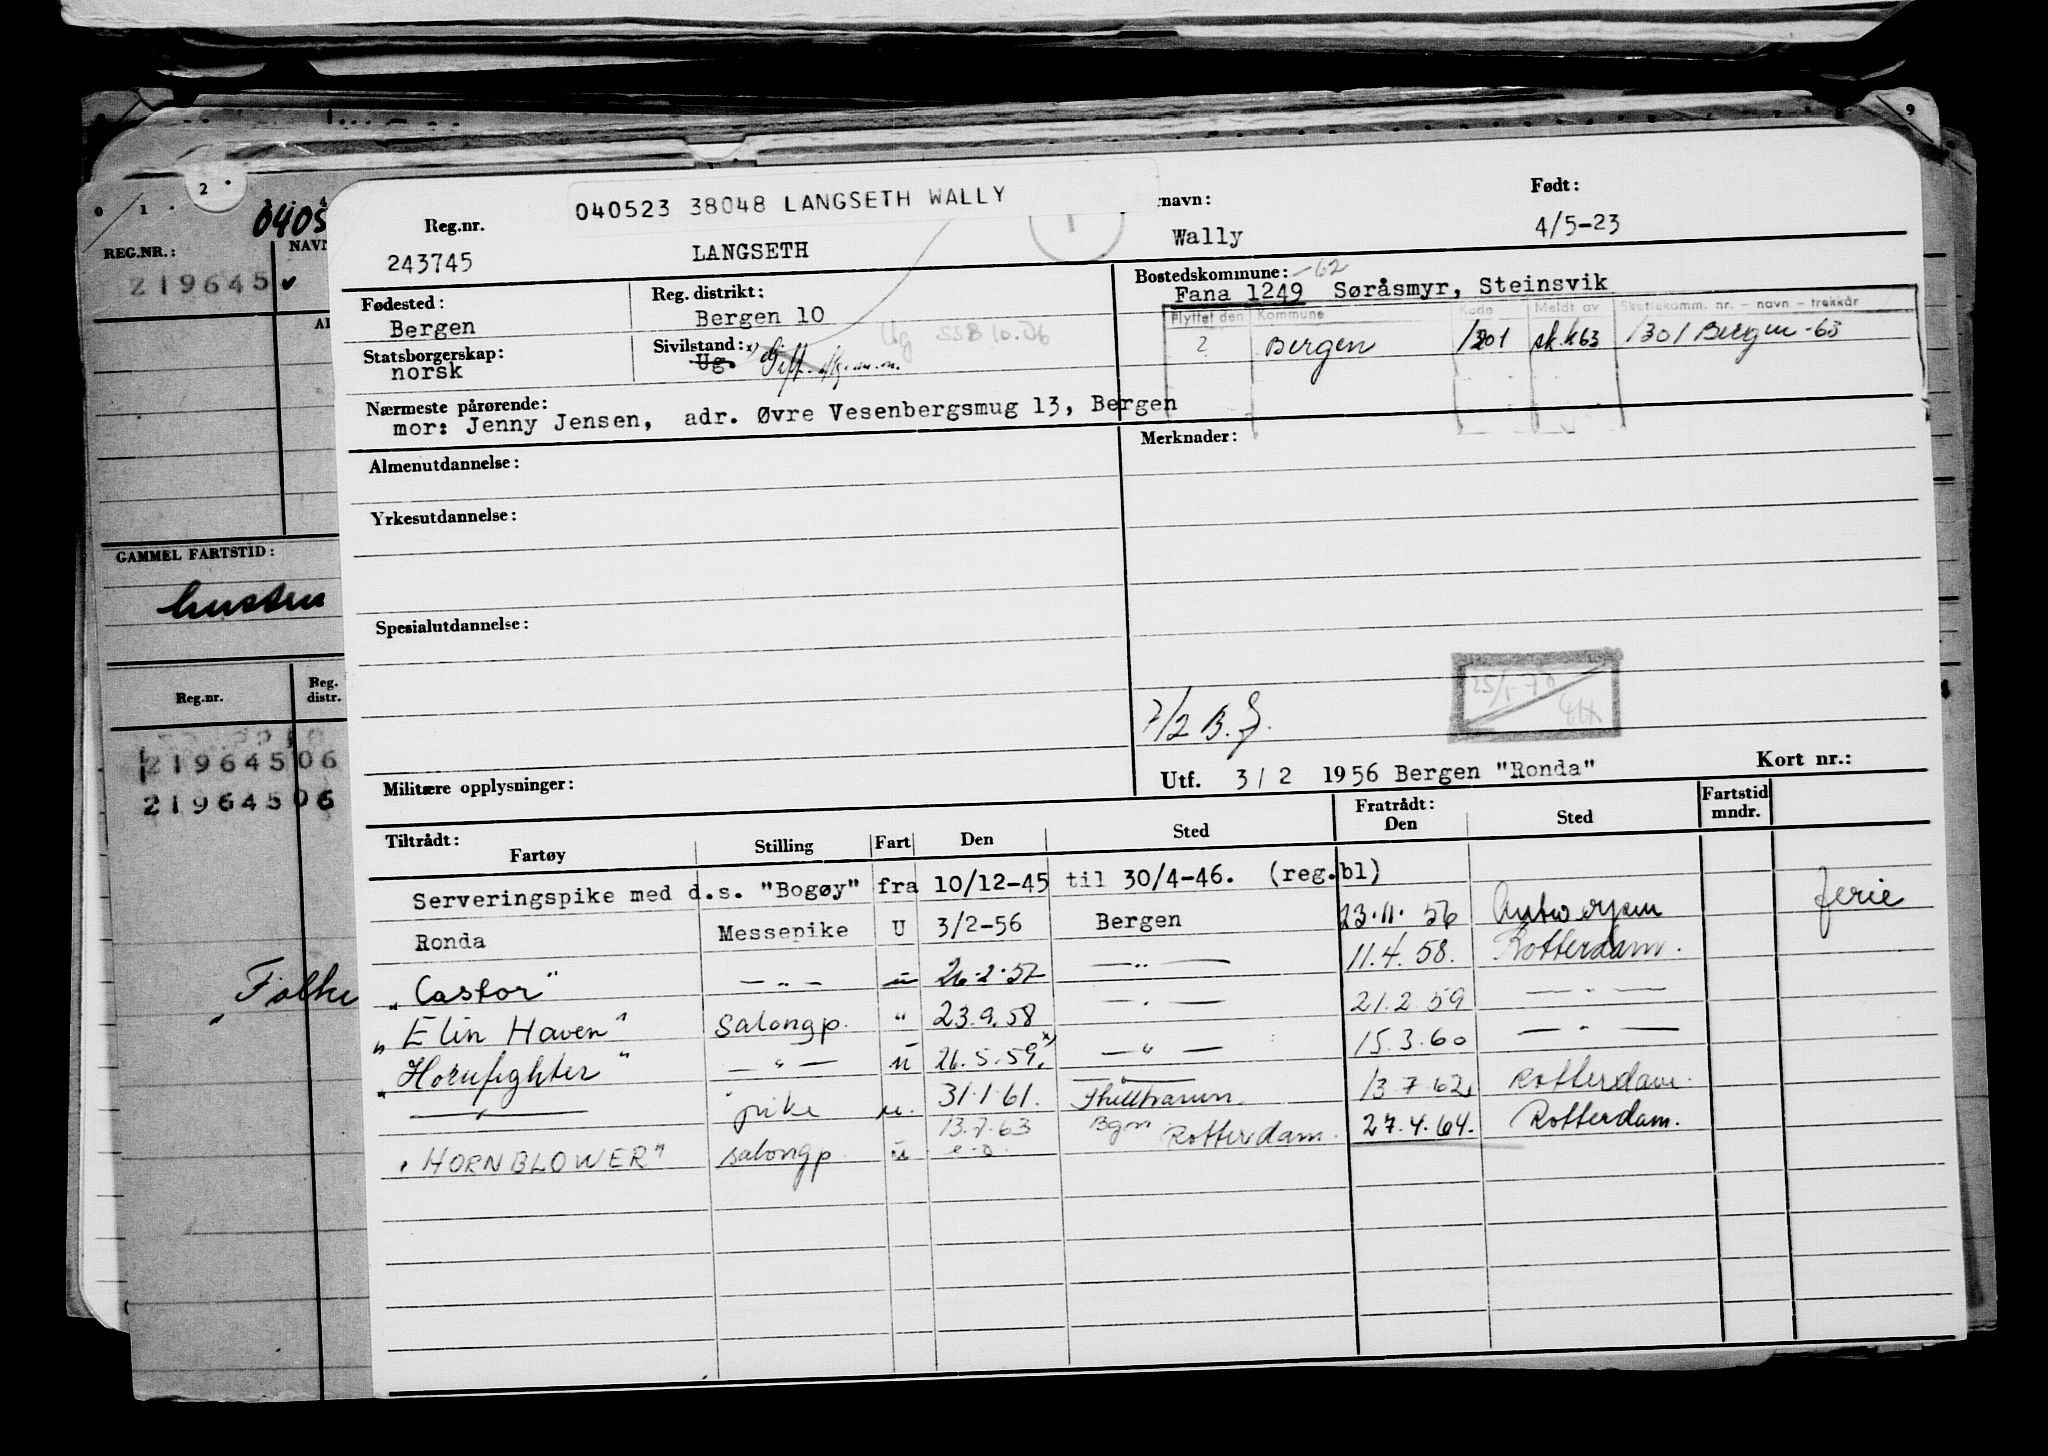 2 ·
9
0 1 ·
0405
REG.NR.:
NAVN
219645
GAMMEL FARTSTID:
hussten
Reg.nr.
Reg. distr.
219645 06
219645 06
"Falke
040523 38048 LANGSETH WALLY
Reg.nr.
navn:
Født:
243745 LANGSETH Wally 4/5-23
Fødested:
Bergen
Reg. distrikt:
Bergen 10
Bostedskommune: -62
Fana 1249 Søråsmyr, Steinsvik
Flyttet den Kommune Kode Meldt av Skattekomm. nr. – navn – trekkår
2 Bergen 1301 sk.k63 1301 Bergen -63
Statsborgerskap:
norsk
Sivilstand: x)
Ug. Gift
Ug SSB 10.06
Nærmeste pårørende:
mor: Jenny Jensen, adr. Øvre Vesenbergsmug 13, Bergen
Merknader:
Almenutdannelse:
Yrkesutdannelse:
Spesialutdannelse:
7/2 B.J.
25/1 70
Militære opplysninger:
Utf. 3/2 1956 Bergen "Ronda"
Kort nr.:
Tiltrådt:
Fartøy Stilling Fart Den Sted
Fratrådt:
Den Sted
Fartstid mndr.
Serveringspike med d.s. "Bogøy" fra 10/12-45 til 30/4-46. (reg.bl)
Ronda Messepike U 3/2-56 Bergen 23.11.56 Antwerpen ferie
"Castor" — " — u 26.2.57 — " — 11.4.58. Rotterdam.
"Elin Haven" Salongp. " 23.9.58 — " — 21.2.59 — " —
"Hornfighter" — " — u 26.5.59. x) — " — 15.3.60 — " —
— " — pike u. 31.1.61. 13.7.62. Rotterdam.
"HORNBLOWER" salongp. u 13.7.63 e.o. Bgn Rotterdam. 27.4.64. Rotterdam.